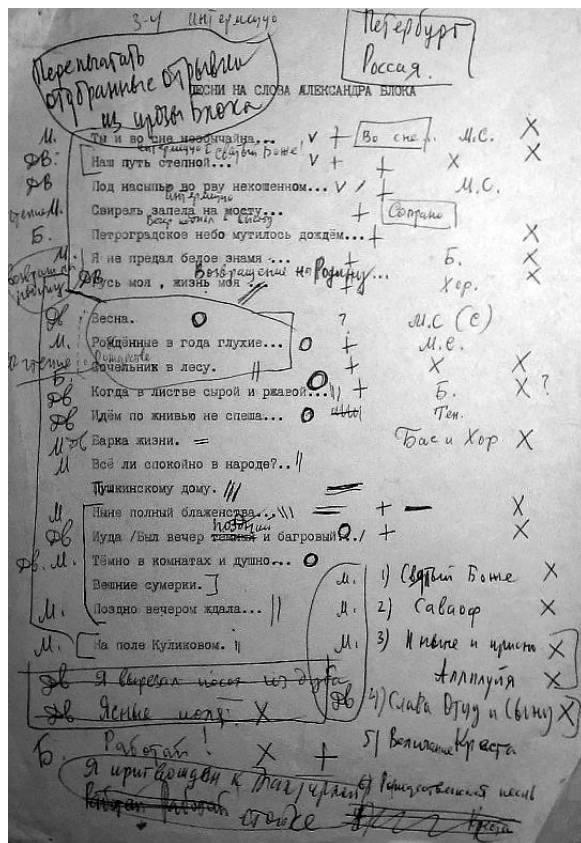 3-й Интермеццо
Петербург
Россия.
Перепечатать
отобранные отрывки
из прозы Блока
ПЕСНИ НА СЛОВА АЛЕКСАНДРА БЛОКА
М. Ты и во сне необычайна... V + Во сне М.С. X
Интермеццо Святый Боже!
ДВ: Наш путь степной... V + + X X
ДВ Под насыпью во рву некошенном... V / + М.С.
Интермеццо
М. Свирель запела на мосту... + Сопрано
Б. Петроградское небо мутилось дождём... + X
М. Я не предал белое знамя ... + Б. X
Возвращение на Родину...
ДВ Русь моя, жизнь моя ... + Хор. X
ДВ Весна. О ? М.С (С)
М. Рождённые в года глухие... О + М.С.
Б. Сочельник в лесу. || + X X
ДВ Когда в листве сырой и ржавой... || + Б. X ?
ДВ Идём по жнивью не спеша... О Тен.
М ДВ Барка жизни. = Бас и Хор X
М Всё ли спокойно в народе?.. ||
Пушкинскому дому. ///
М Ныне полный блаженства... \\\ + — X
поздний
ДВ Иуда /Был вечер темный и багровый.../ О + X
ДВ. М. Тёмно в комнатах и душно... О
Вешние сумерки. ]
М. Поздно вечером ждала... ||
М. На поле Куликовом. ||
М. 1) Святый Боже X
М. 2) Саваоф X
М. 3) И ныне и присно X
Аллилуйя X
ДВ 4) Слава Отцу и Сыну X
5) Величание Креста
6) Рождественская песнь
ДВ Я вырезал посох из дуба
ДВ Ясные поля. X
Б. Работай! X +
Я пригвожден к трактирной
Работай Работай стойке